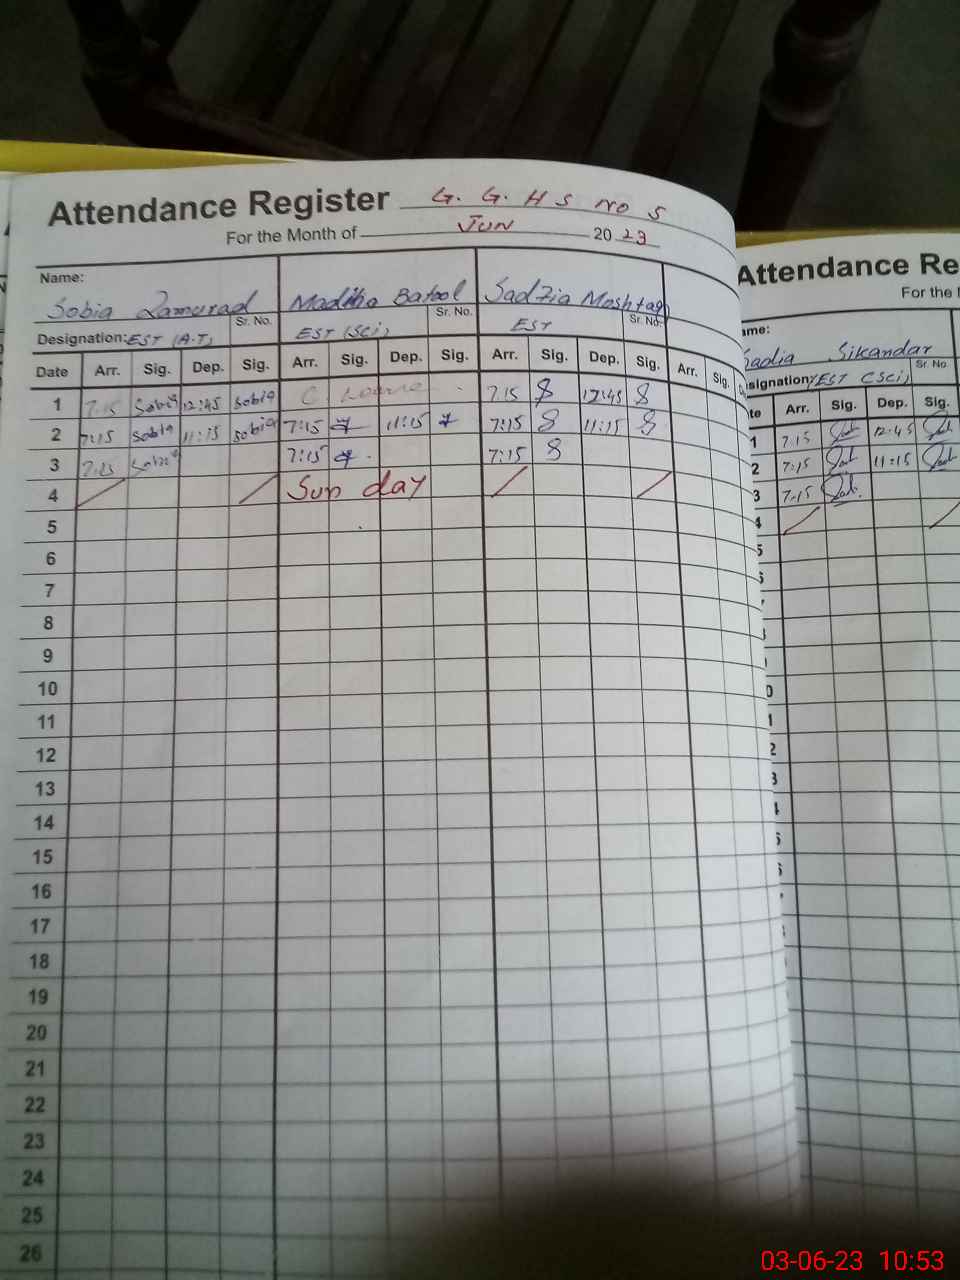 Attendance Register G. G. H S no 5
For the Month of JUN 20 23
Name:
Sobia Zamurad Madiha Batool Sadzia Moshtaq
Sr. No. Sr. No. Sr. No.
Designation: EST (A.T) EST (SCi) EST
Date Arr. Sig. Dep. Sig. Arr. Sig. Dep. Sig. Arr. Sig. Dep. Sig. Arr. Sig.
1 7.15 Sobia 12:45 sobia C. Leave 7.15 12:45
2 7:15 Sobia 11:15 sobia 7:15 11:15 7:15 11:15
3 7:15 Sobia 7:15 7:15
4 Sun day
5
6
7
8
9
10
11
12
13
14
15
16
17
18
19
20
21
22
23
24
25
26
Attendance Re
For the
ame:
Sadia Sikandar
Sr No.
signation: EST (SCi)
te Arr. Sig. Dep. Sig.
1 7.15 12:45
2 7:15 11:15
3 7.15
4
5
03-06-23 10:53